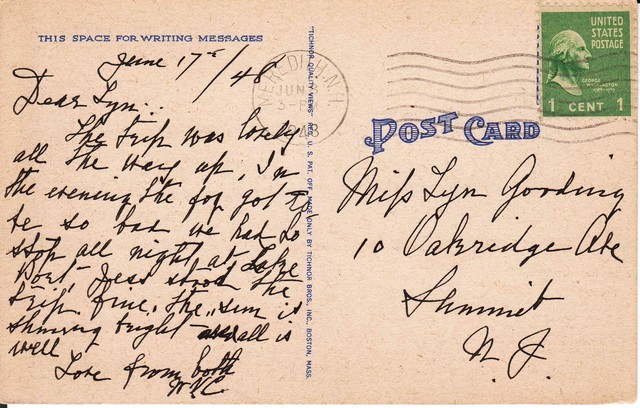 THIS SPACE FOR WRITING MESSAGES
June 17th/48
Dear Lyn..
The trip was lovely
all the way up, In
the evening the fog got to
be so bad we had to
stop all night at Lake
Port, Jess stood the
trip fine. The sun is
shining bright and all is
well
Love from both
W.V.C.
"TICHNOR QUALITY VIEWS" REG. U. S. PAT. OFF. MADE ONLY BY TICHNOR BROS. INC., BOSTON, MASS.
MEREDITH, N.H.
JUN
3-P
48
UNITED
STATES
POSTAGE
GEORGE
WASHINGTON
1 CENT 1
POST CARD
Miss Lyn Gooding
10 Oakridge Ave
Summit
N. J.